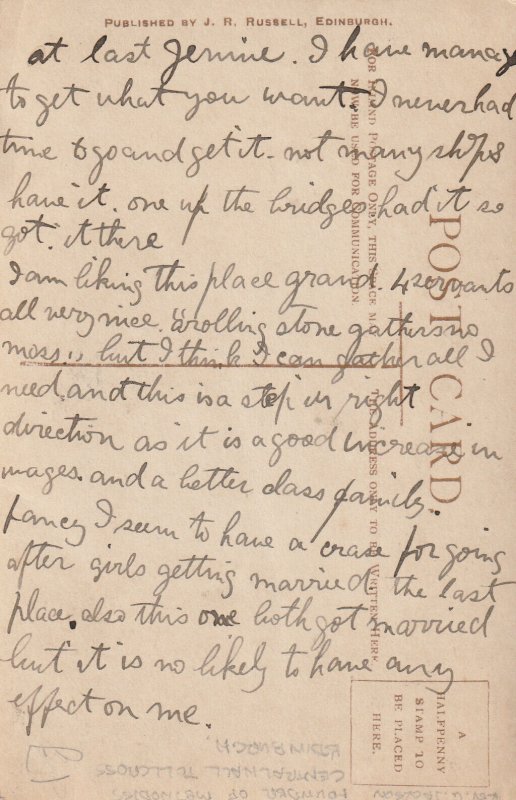 PUBLISHED BY J. R. RUSSELL, EDINBURGH.
at last Jennie. I have manag
to get what you want. I never had
time to go and get it. not many shops
have it. one up the bridges had it so
got it there
I am liking this place grand. 4 servants
all very nice. "a rolling stone gathers no
moss", but I think I can gather all I
need. and this is a step in right
direction as it is a good increase in
wages. and a better class family.
fancy I seem to have a craze for going
after girls getting married. the last
place. also this one both got married
but it is no likely to have any
effect on me.
POST CARD.
FOR INLAND POSTAGE ONLY, THIS SPACE M
NOW BE USED FOR COMMUNICATION.
THE ADDRESS ONLY TO BE WRITTEN HERE.
A
HALFPENNY
STAMP TO
BE PLACED
HERE.
JACKSON
FOUNDER OF METHODIST
CENTRAL HALL TOLLCROSS
EDINBURGH